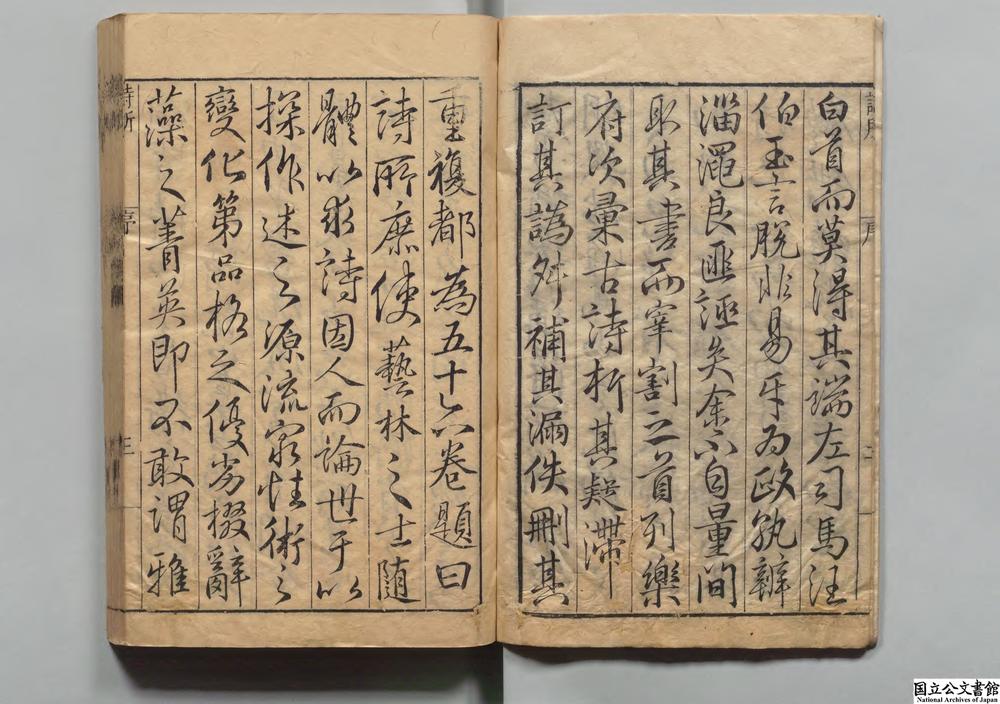 白首而莫得其端左司馬汪
伯玉言脫非易牙為歐孰辨
淄澠良匪誣矣余不自量間
取其書而宰割之首列樂
府次彙古詩析其疑滯
訂其譌舛補其漏佚刪其
重複都為五十六卷題曰
詩所庶使藝林之士隨
體以求詩因人而論世于以
探作述之源流窮性術之
變化第品格之優劣掇辭
藻之菁英即不敢謂雅
詩所
序
三
国立公文書館
National Archives of Japan